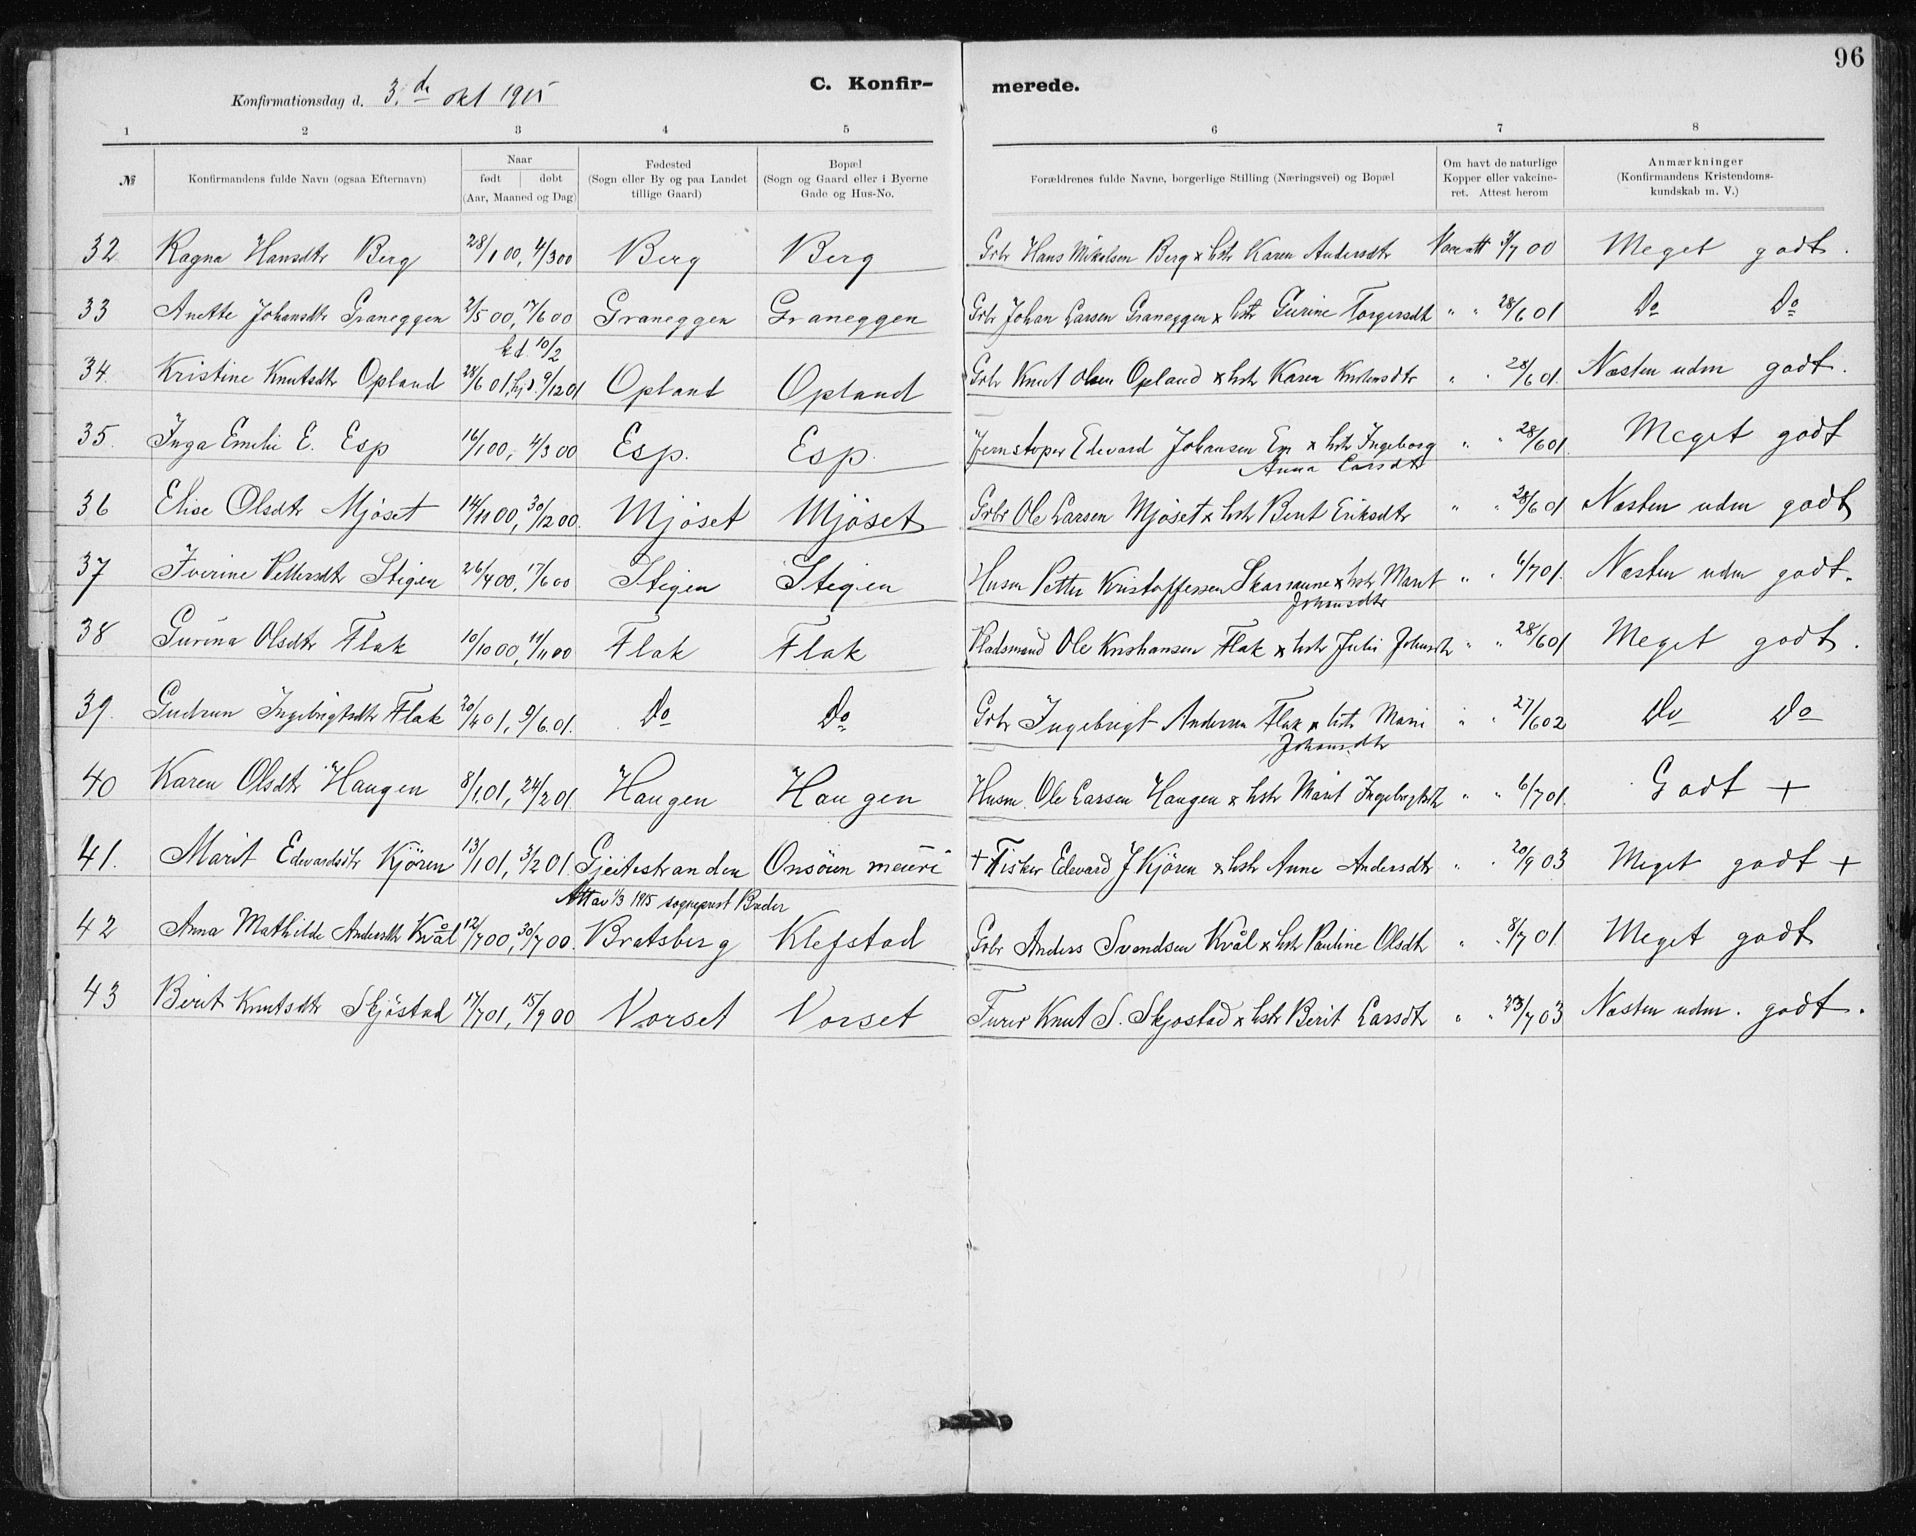 96
C. Konfir- merede.
Konfirmationsdag d. 3.de okt 1915
1 2 3 4 5 6 7 8
№ Konfirmandens fulde Navn (ogsaa Efternavn) Naar født døbt (Aar, Maaned og Dag) Fødested (Sogn eller By og paa Landet tillige Gaard) Bopæl (Sogn og Gaard eller i Byerne Gade og Hus-No. Forældrenes fulde Navne, borgerlige Stilling (Næringsvei) og Bopæl Om havt de naturlige Kopper eller vakcineret. Attest herom Anmærkninger (Konfirmandens Kristendomskundskab m. V.)
32. Ragna Hansdtr Berg 28/1 00, 4/3 00 Berg Berg Grbr Hans Mikelsen Berg x hstr Karen Andersdtr Vacc att /7 00 Meget godt.
33 Anette Johansdtr Graneggen 2/5 00, 17/6 00 Graneggen Graneggen Grbr Johan Larsen Graneggen x hstr Gurine Torgersdt " " 28/6 01 Do Do
k.d. 10/2
34. Kristine Knutsdtr Opland 28/6 01, hjd. 9/12 01 Opland Opland Grbr Knut Olsen Opland x hstr Karen Kristensdtr " " 28/6 01. Næsten udm godt.
35. Inga Emelie E. Esp 16/1 00, 4/3 00 Esp. Esp. Jernstøper Edevard Johansen Esp x hstr Ingeborg Anna Larsdtr " " 28/6 01. Meget godt
36 Elise Olsdtr Mjøset 14/11 00, 30/12 00. Mjøset Mjøset Grbr Ole Larsen Mjøset x hstr Berit Eriksdtr " " 28/6 01 Næsten udm godt
37 Iverine Pettersdtr Stigen 26/4 00, 17/6 00 Stigen Stigen Husm Petter Kristoffersen Skaraune x hstr Marit Johansdtr " " 6/7 01. Næsten udm godt.
38 Gurina Olsdtr Flak 10/10 00, 11/11 00 Flak Flak Pladsmand Ole Kristiansen Flak x hstr Julie Johnsdtr " " 28/6 01 Meget godt.
39. Gudrun Ingebrigtsdtr Flak 20/4 01, 9/6 01. Do Do Grbr Ingebrigt Andersen Flak x hstr Marie Johansdtr " " 27/6 02 Do Do
40 Karen Olsdtr Haugen 8/1 01, 24/2 01. Haugen Haugen Husm. Ole Larsen Haugen x hstr Marit Ingebrigtsdtr " " 6/7 01. Godt +
41. Marit Edevardsdtr Kjören 13/1 01, 3/2 01 Gjeitestranden Onsöien meieri + Fisker Edevard J Kjören x hstr Anne Andersdtr " " 20/9 03 Meget godt +
Att av 1/3 1915 sogneprest Buder
42 Anna Mathilde Andersdtr Kvål 12/7 00, 30/7 00. Bratsberg Klefstad Grbr Anders Svendsen Kvål x hstr Pauline Olsdtr " " 8/7 01. Meget godt
43 Berit Knutsdtr Skjöstad 17/7 01, 15/9 00 Vorset Vorset Furer Knut S. Skjöstad x hstr Berit Larsdtr " " 23/7 03 Næsten udm. godt.